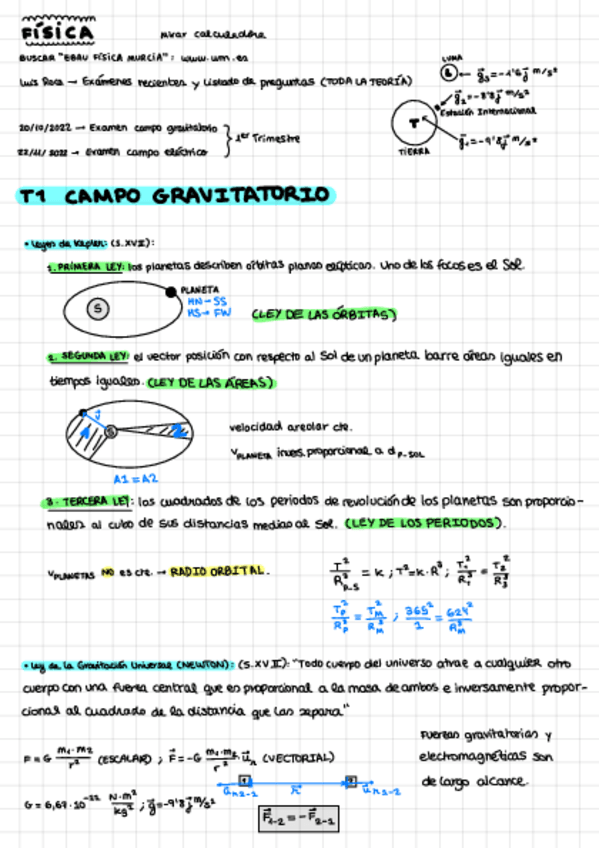 FÍSICA
mirar calculadora
BUSCAR "EBAU FÍSICA MURCIA": www.um.es
Luis Roca → Exámenes recientes y listado de preguntas (TODA LA TEORÍA)
LUNA
L
g₃=-1'6j m/s²
g₂=-8'8j m/s²
Estación Internacional
T
g₁=-9'8j m/s²
TIERRA
20/10/2022 → Examen campo gravitatorio
22/11/2022 → Examen campo eléctrico
1er Trimestre
T1 CAMPO GRAVITATORIO
• Leyes de Kepler: (S.XVII):
1. PRIMERA LEY: los planetas describen órbitas planas elípticas. Uno de los focos es el Sol.
S
PLANETA
HN→SS
HS→FW
(LEY DE LAS ÓRBITAS)
2. SEGUNDA LEY: el vector posición con respecto al Sol de un planeta barre áreas iguales en
tiempos iguales. (LEY DE LAS ÁREAS)
S
velocidad areolar cte.
V PLANETA inves. proporcional a d P-SOL
A1=A2
3. TERCERA LEY: los cuadrados de los periodos de revolución de los planetas son proporcio-
nales al cubo de sus distancias medias al Sol. (LEY DE LOS PERIODOS).
V PLANETAS NO es cte. → RADIO ORBITAL.
T²/R³ P-S = K ; T²=K·R³ ; T₁²/R₁³ = T₂²/R₂³
T²/R³ = T²M/R³M ; 365²/1 = 624²/R³M
• Ley de la Gravitación Universal (NEWTON): (S.XVII): "Todo cuerpo del universo atrae a cualquier otro
cuerpo con una fuerza central que es proporcional a la masa de ambos e inversamente propor-
cional al cuadrado de la distancia que las separa"
F=G m₁·m₂/r² (ESCALAR) ; F=-G m₁·m₂/r² uᵣ (VECTORIAL)
Fuerzas gravitatorias y
electromagnéticas son
de largo alcance.
1
r
G=6,67·10 N·m²/kg² ; g=-9'8j m/s²
F₁₋₂=-F₂₋₁